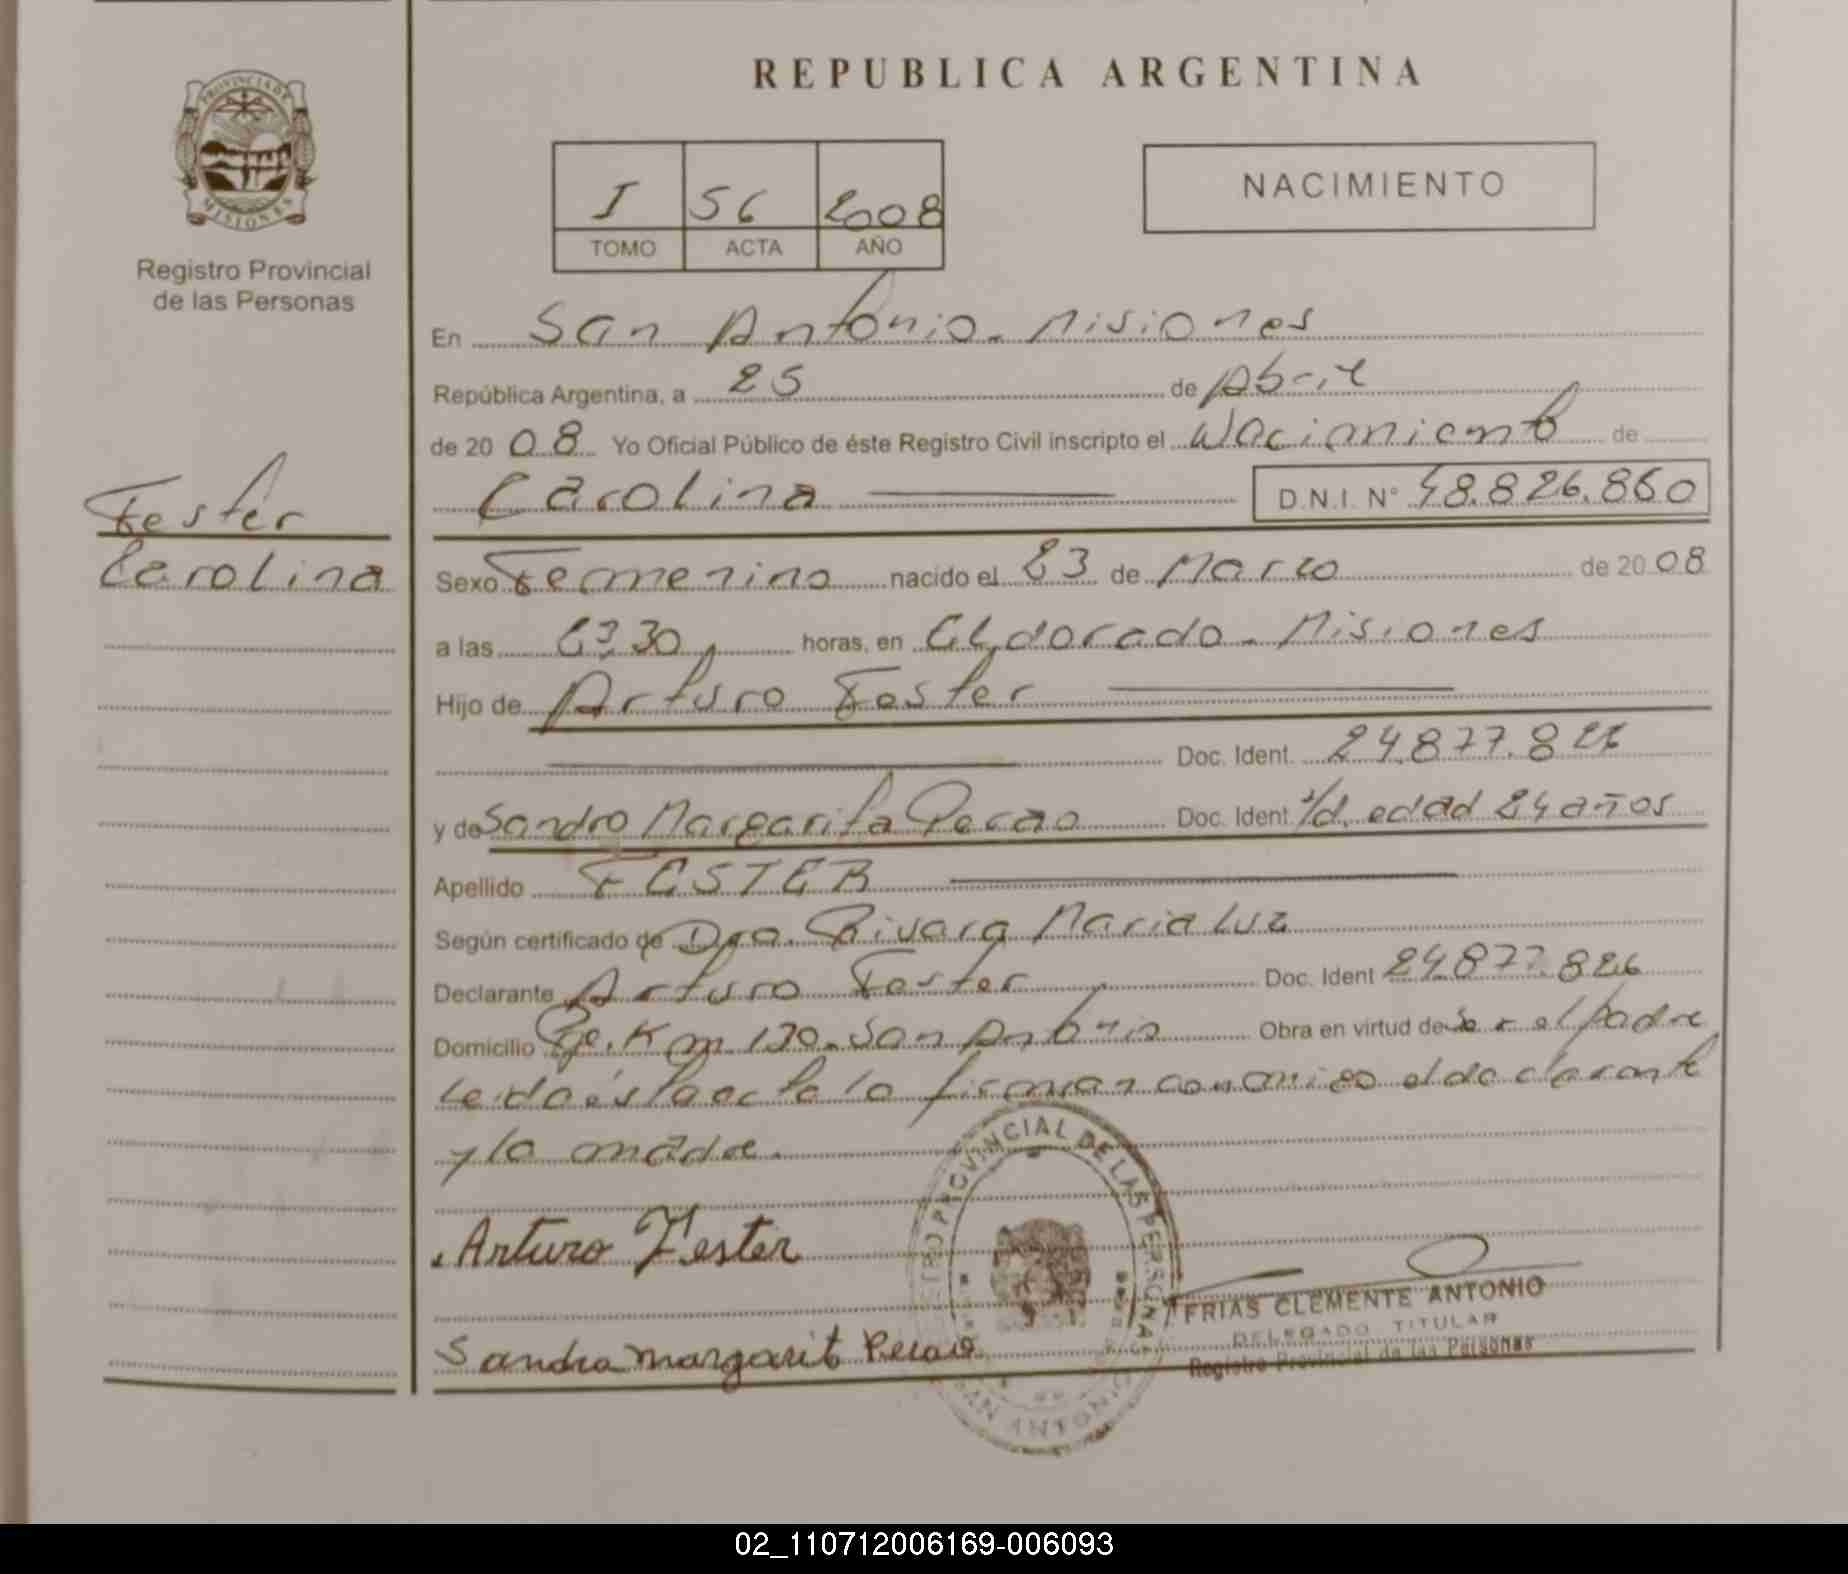 REPUBLICA ARGENTINA
PROVINCIA DE
MISIONES
Registro Provincial
de las Personas
I 56 2008
TOMO ACTA AÑO
NACIMIENTO
En San Antonio - Misiones
República Argentina, a 25 de Abril
de 20 08 Yo Oficial Público de éste Registro Civil inscripto el Nacimiento de
Carolina D.N.I. Nº 48.826.860
Fester
Carolina
Sexo Femenino nacido el 23 de Marzo de 20 08
a las 30 horas, en Eldorado - Misiones
Hijo de Arturo Fester
Doc. Ident. 24.877.826
y de Sandra Margarita Pecao Doc. Ident. s/d. edad 24 años
Apellido FESTER
Según certificado de Dra. Rivara Maria Luz
Declarante Arturo Fester Doc. Ident 24.877.826
Domicilio Pje. Km 130 - San Antonio Obra en virtud de Ser el padre
Leida ésta acta la firman conmigo el declarante
y la madre.
Arturo Fester
Sandra margarit Pecao
REGISTRO PROVINCIAL DE LAS PERSONAS
SAN ANTONIO
FRIAS CLEMENTE ANTONIO
DELEGADO TITULAR
Registro Provincial de las Personas
02_110712006169-006093